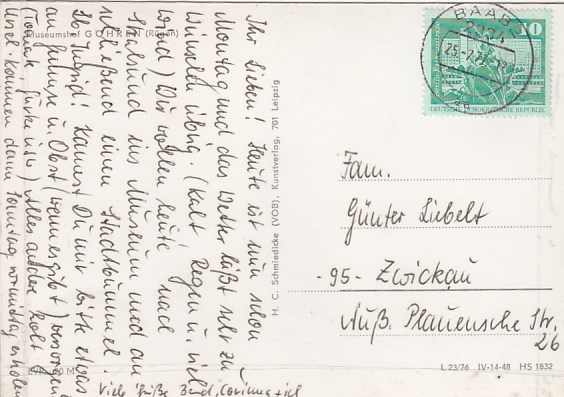 Museumshof GÖHREN (Rügen)
Ihr Lieben! Heute ist nun schon
Montag und das Wetter läßt sehr zu
wünschen übrig. (Kalt, Regen u. viel
Wind) Wir wollen heute nach
Stralsund ins Museum und an
schließend einen Stadtbummel.
Ingrid! Kannst Du mir bitte etwas
an Gemüse u. Obst (wenn es gibt) besorgen
alles andere holt
kommen dann Sonntag vormittag
Viele Grüße Bernd, Corinna +
H. C. Schmiedicke (VOB), Kunstverlag, 701 Leipzig
BAABE
2334
10
DEUTSCHE DEMOKRATISCHE REPUBLIK
Fam.
Günter Liebelt
-95- Zwickau
Äuß. Plauensche Str.
26
L 23/76 IV-14-48 HS 1832